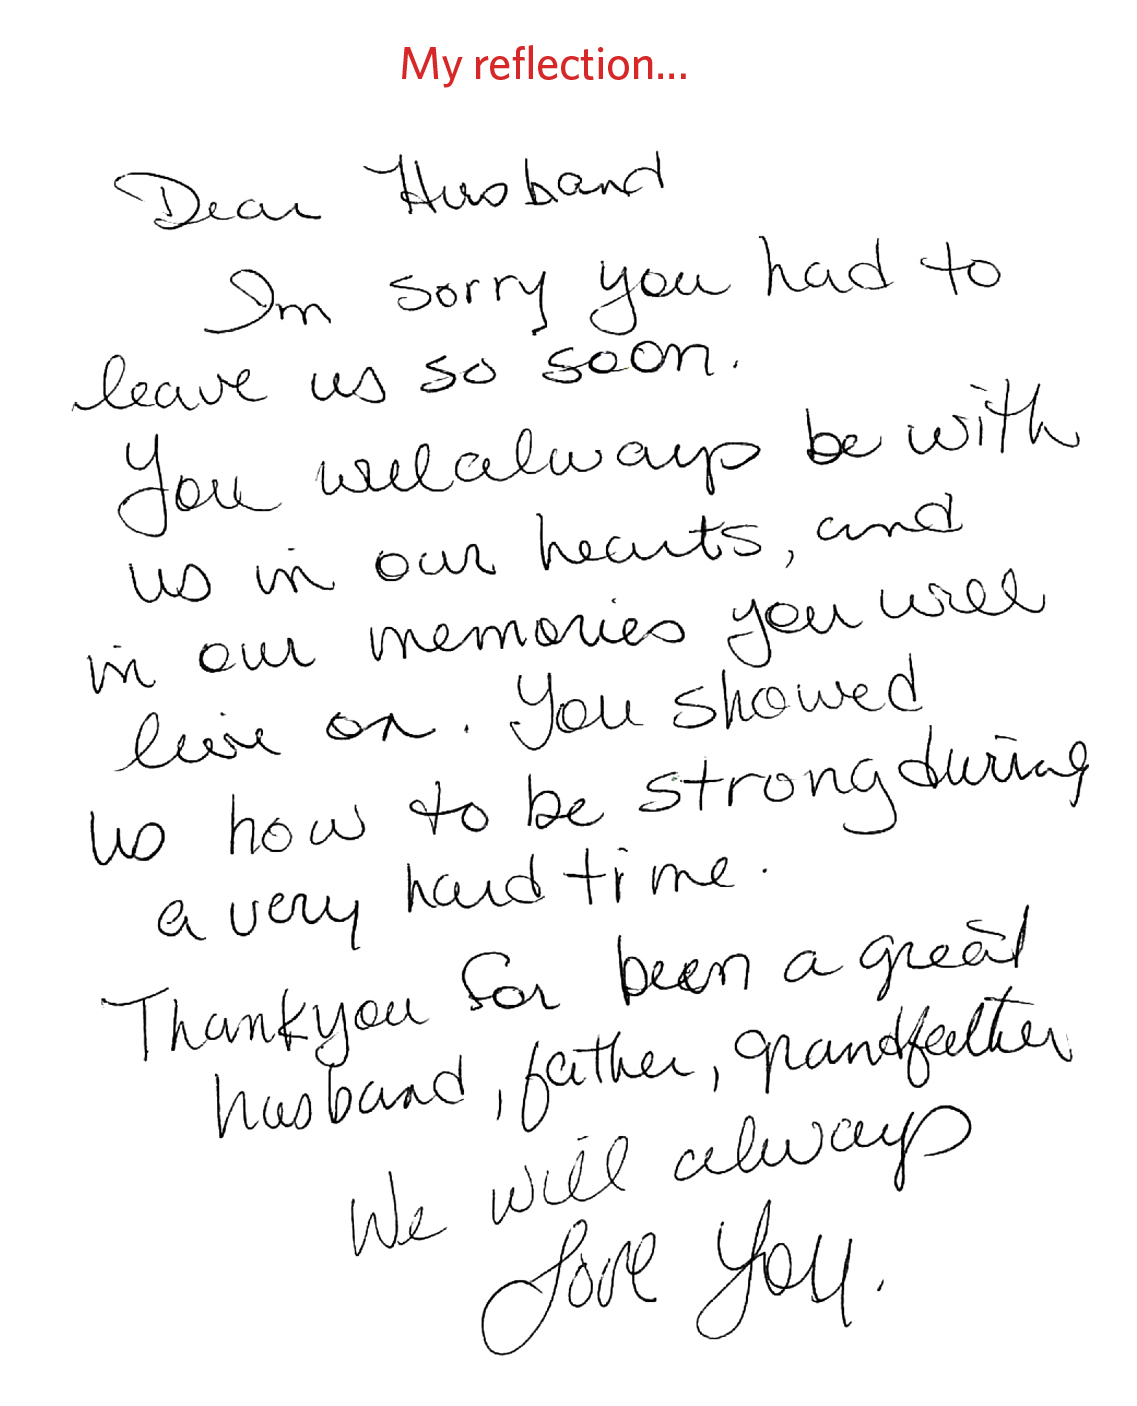 My reflection...
Dear Husband
Im sorry you had to
leave us so soon.
You will always be with
us in our hearts, and
in our memories you will
live on. You showed
us how to be strong during
a very hard time.
Thankyou for been a great
husband, father, grandfather
We will always
Love You.